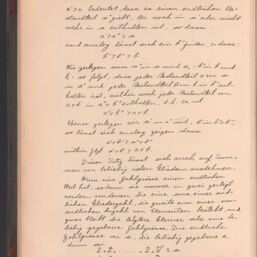 a'>a bedeutet, dass es einen endlichen Be-
standteil a' giebt, der noch in a' aber nicht
mehr in a enthalten ist, so dass
a'>a''>a
und analog lässt sich ein b'' finden, so dass:
b'>b''>b
Wir zerlegen nun a' in a und a, b' in b und
so folgt, dass jeder Bestandteil von a
in a' und jeder Bestandteil von b in b' ent-
halten ist, mithin auch jeder Bestandteil von
a+b in a'+b' enthalten, d.h. es ist
a'+b'>a+b
Ebenso zerlegen wir a' in a'' und, b' in b''+b'',
so lässt sich analog zeigen dass
a'+b'>a''+b''
mithin folgt a'+b'>a+b
Dieser Satz lässt sich auch auf Sum-
men von beliebig vielen Gliedern ausdehnen.
Wenn eine Zahlgrösse einen endlichen
Wert hat, so kann sie immer in zwei zerlegt
werden, von denen die eine aus einer end-
lichen Gliederzahl, die zweite aus einer un-
endlichen Anzahl von Elementen besteht und
zwar bleibt die letztere kleiner als eine be-
liebig gegebene Zahlgrösse. Die endliche
Zahlgrösse sei a, die beliebig gegebene
dann sei